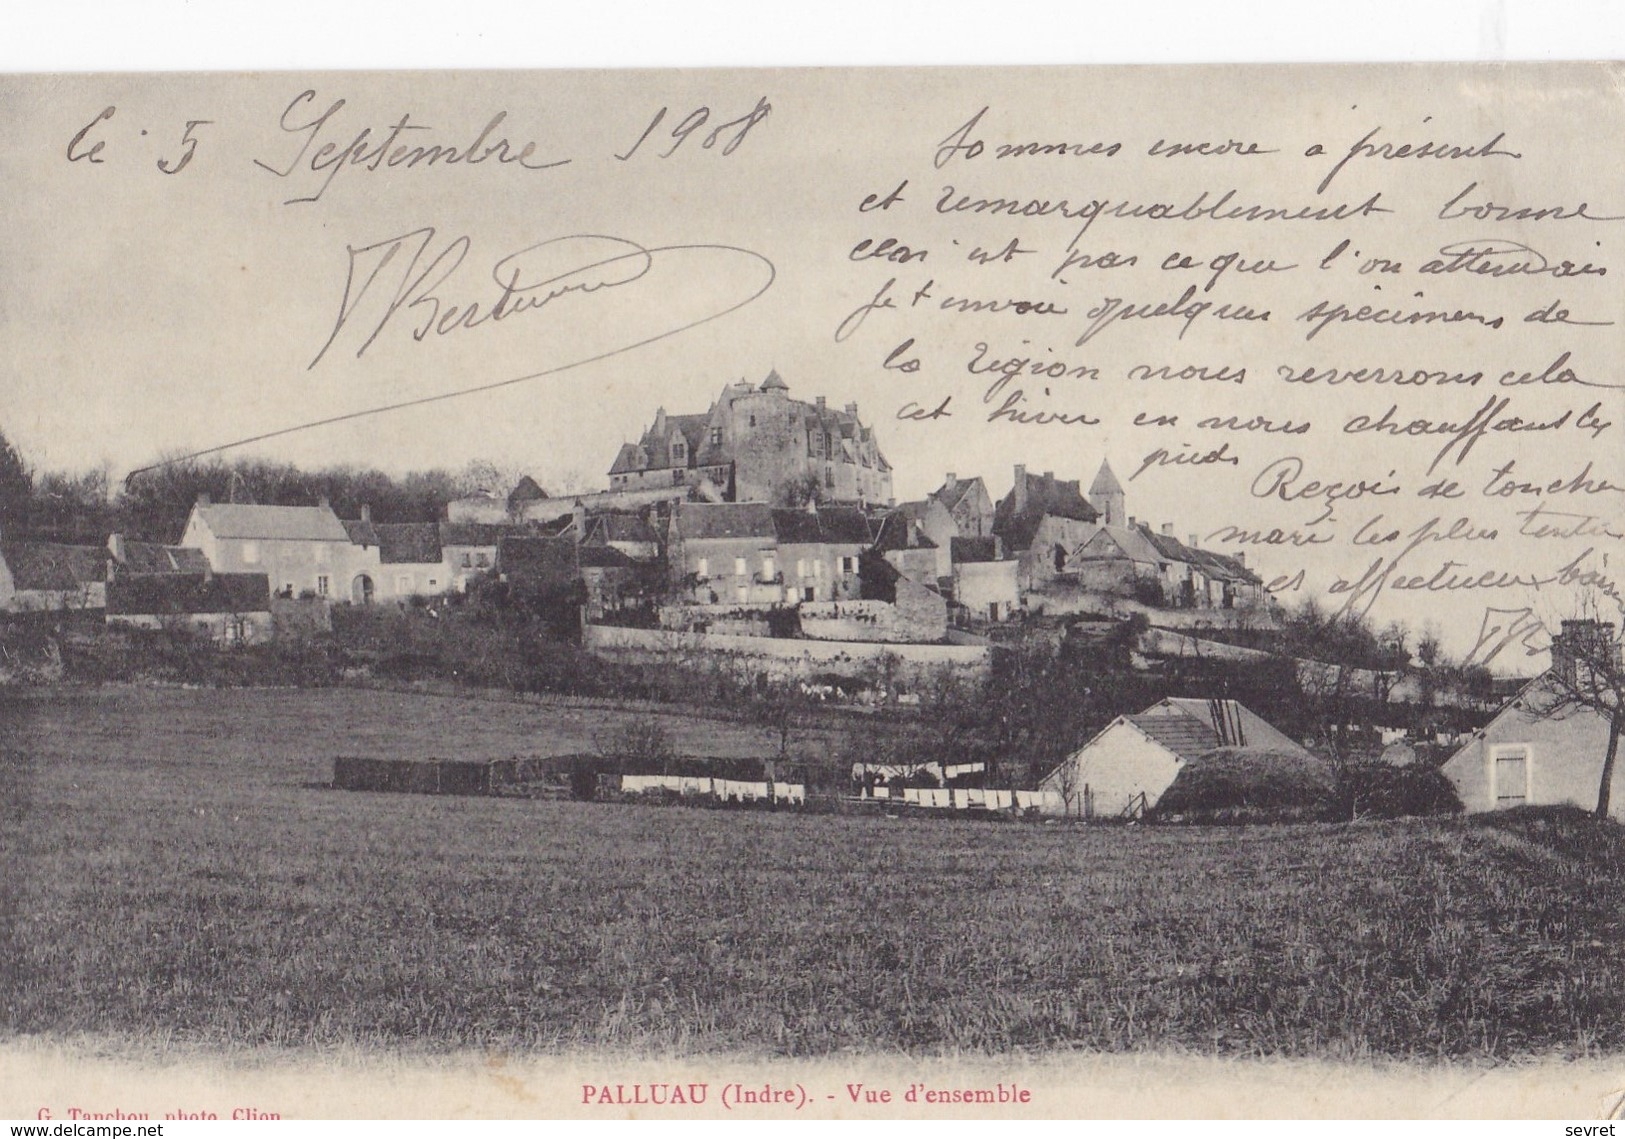 Le 5 Septembre 1908
Sommes encore à présent
et remarquablement bonne
est par ce que l'on attendais
Je t envoie quelques spécimens de
la région nous reverrons cela
cet hiver en nous chauffant les
pieds
Reçois de ton cher
mari les plus
et affectueux
PALLUAU (Indre). - Vue d'ensemble
G. Tanchou, photo, Clion
delcampe.net
sevret